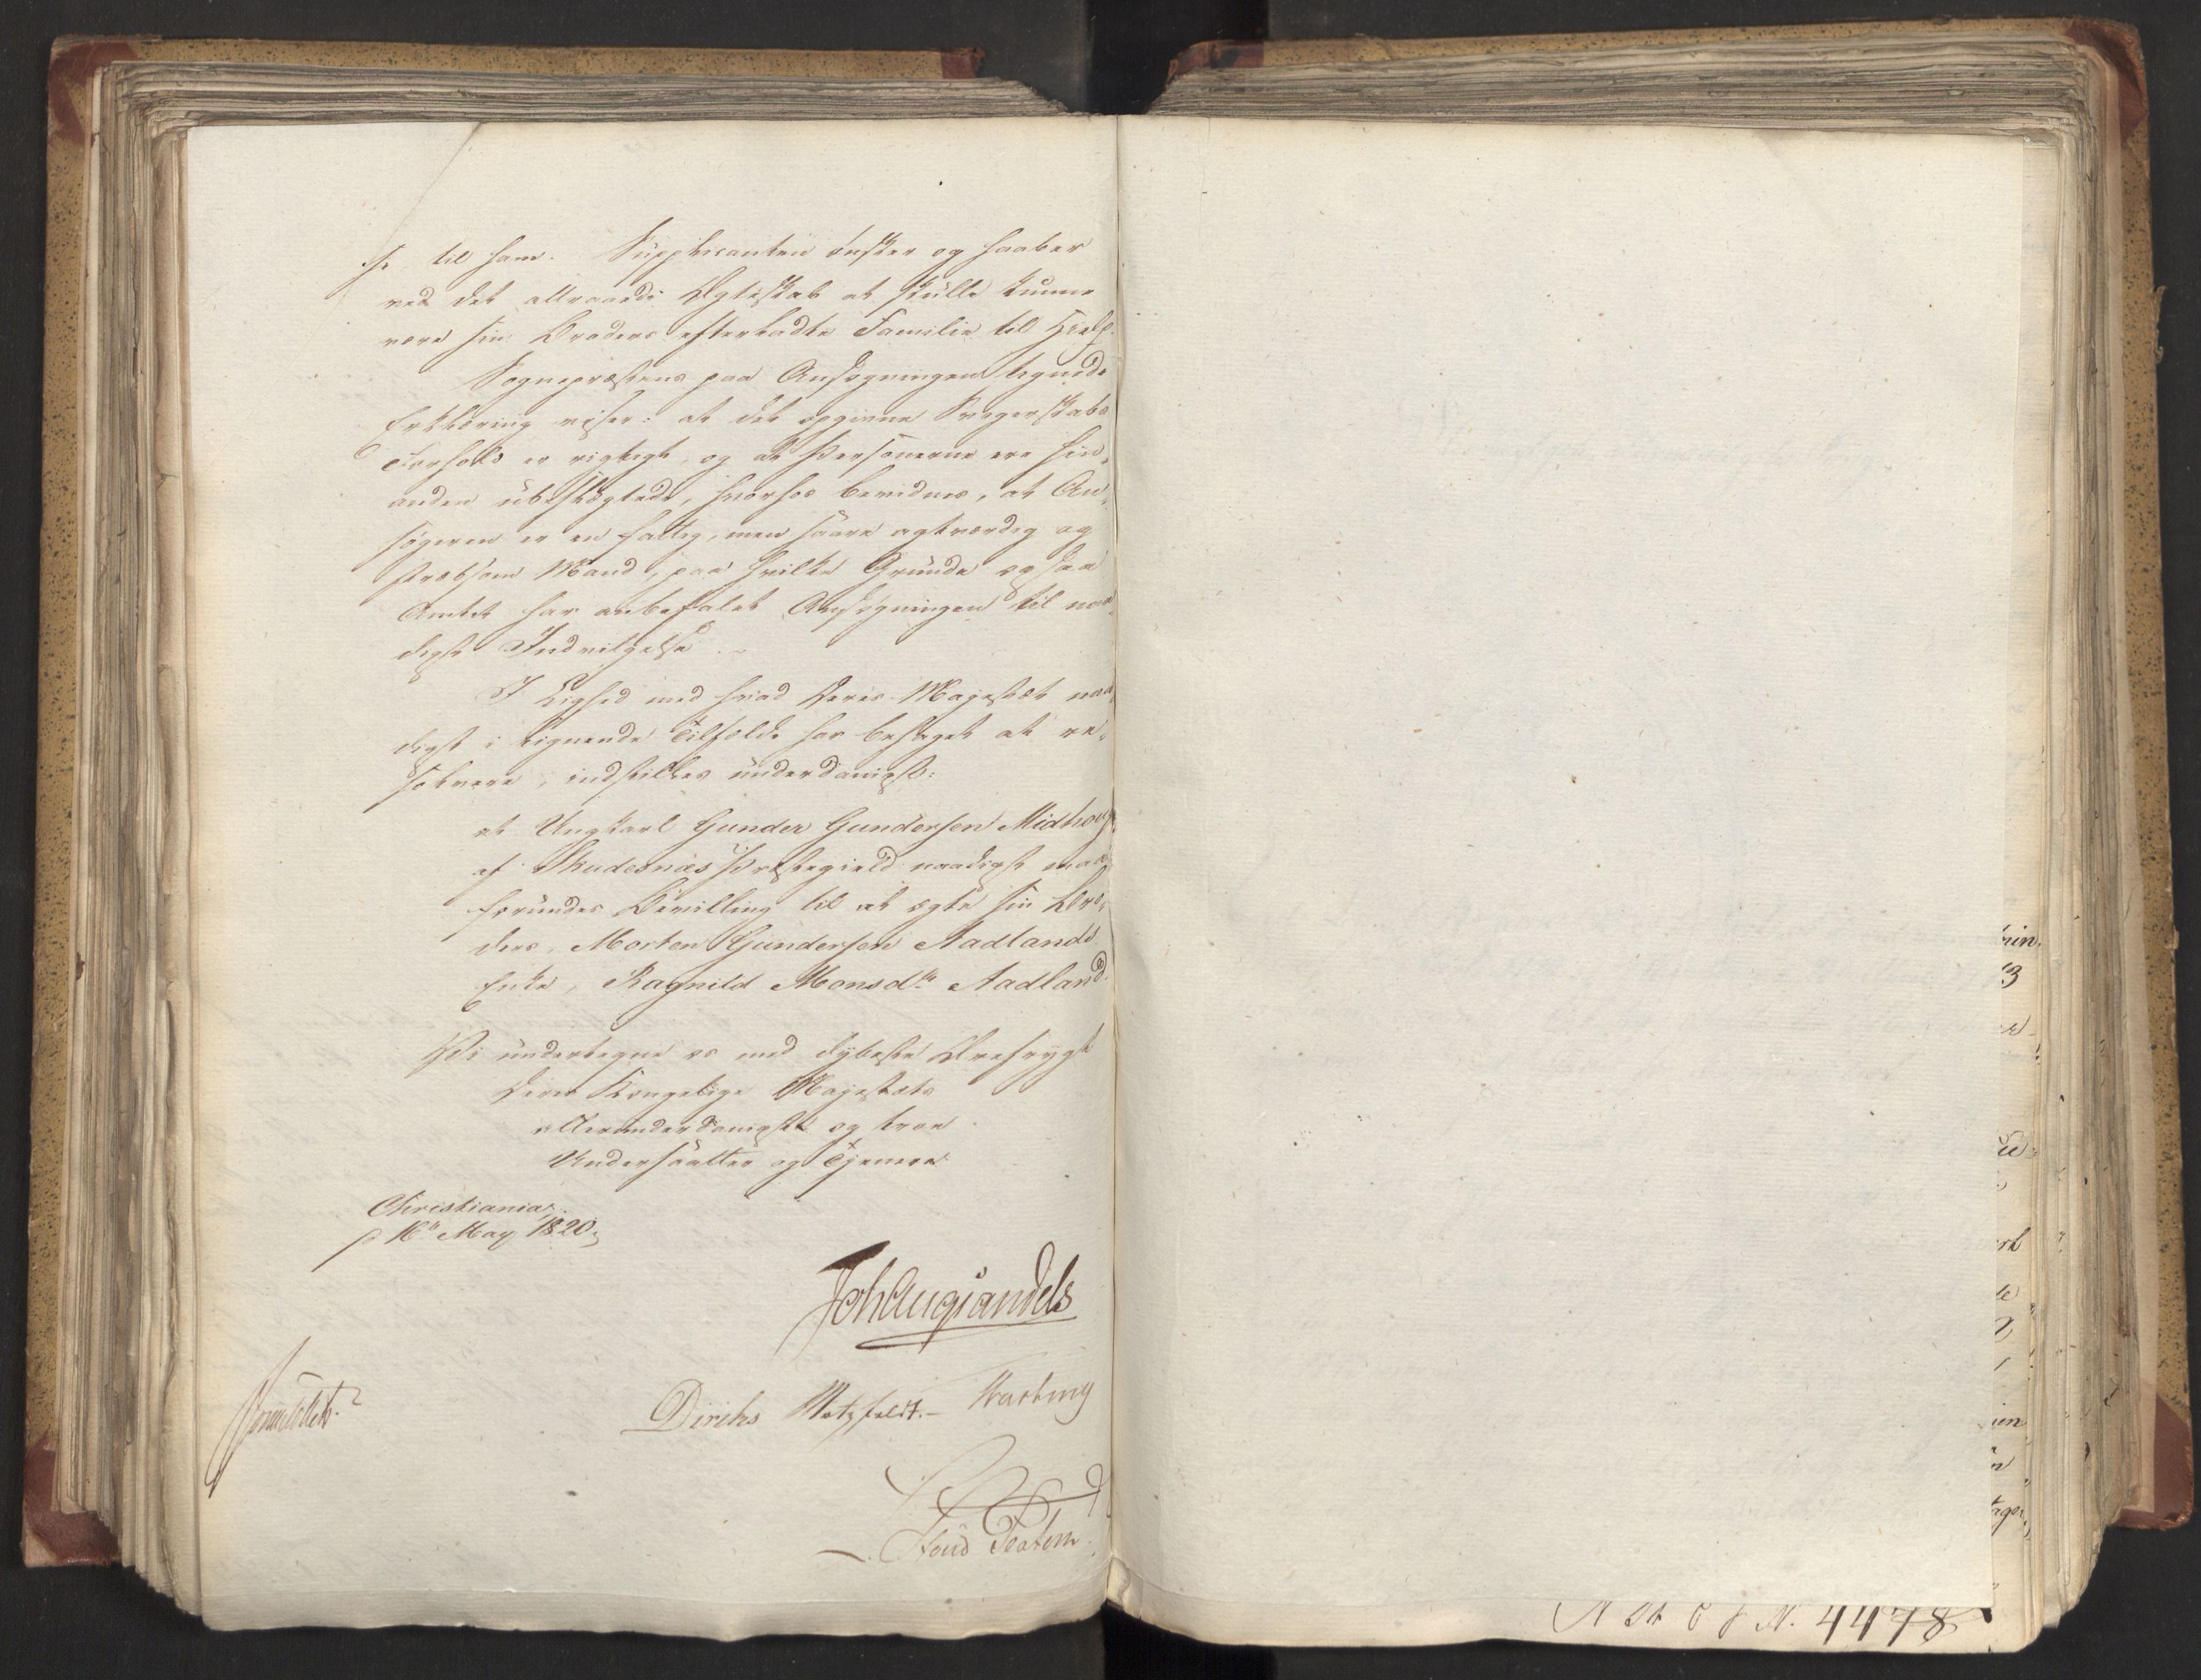 se til ham. Supplicanten ønsker og haaber
ved det attraaede Ægteskab at skulle kunne
være sin Broders efterladte Familie til Hjelp.
Sognepræstens paa Ansøgningen tegnede
Erklæring viser: at det opgivne Svogerskabs
Forhold er rigtigt, og at Personerne ere hin„
anden ubeslægtede, hvorhos bevidnes, at An„
søgeren er en fattig, men saare agtværdig og
stræbsom Mand, paa hvilke Grunde ogsaa
Amtet har anbefalet Ansøgningen til naa„
digst Indvilgelse.
I Lighed med hvad Deres Majestæt naa„
digst i lignende Tilfælde har behaget at re„
solvere, indstilles underdanigst:
at Ungkarl Gunder Gundersen Midhoug
af Skudesnæs Præstegield naadigst maa
forundes Bevilling til at ægte sin Bro„
ders, Morten Gundersen Aadlands
Enke, Ragnild Monsdtr Aadland.
Vi undertegne os med dybeste Ærefrygt
Deres Kongelige Majestæts
allerunderdanigste og troe
Undersaatter og Tjenere
Christiania,
p 16de May 1820.
Joh Aug Sandels
Sommerfeldt.
Diriks Motzfeldt.– Krebting
Houd Platou
A St C J N. 4478